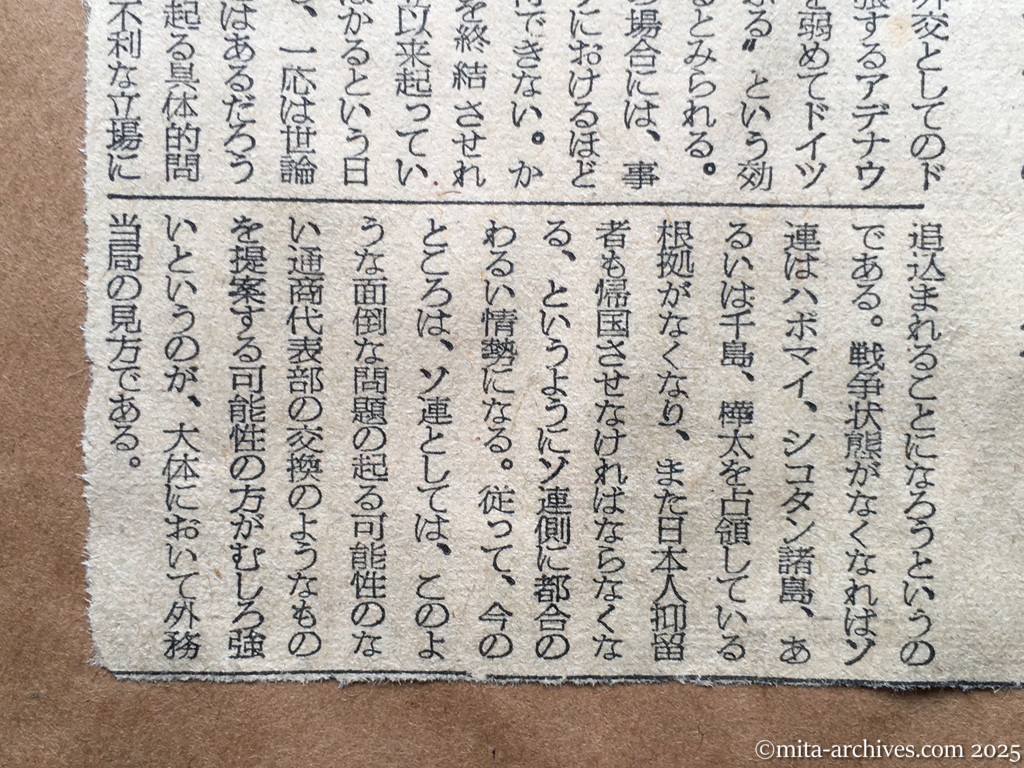 外交としてのド
張するアデナウ
を弱めてドイツ
ぶる〃という効
るとみられる。
の場合には、事
うにおけるほど
待できない。か
を終結させれ
以来起ってい
はかるという日
、一応は世論
はあるだろう
起る具体的問
不利な立場に
追込まれることになろうというの
である。戦争状態がなくなれば、ソ
連はハボマイ、シコタン諸島、あ
るいは千島、樺太を占領している
根拠がなくなり、また日本人抑留
者も帰国させなければならなくな
る、というようにソ連側に都合の
わるい情勢になる。従って、今の
ところは、ソ連としては、このよ
うな面倒な問題の起る可能性のな
い通商代表部の交換のようなもの
を提案する可能性の方がむしろ強
いというのが、大体において外務
当局の見方である。
©mita-archives.com 2025